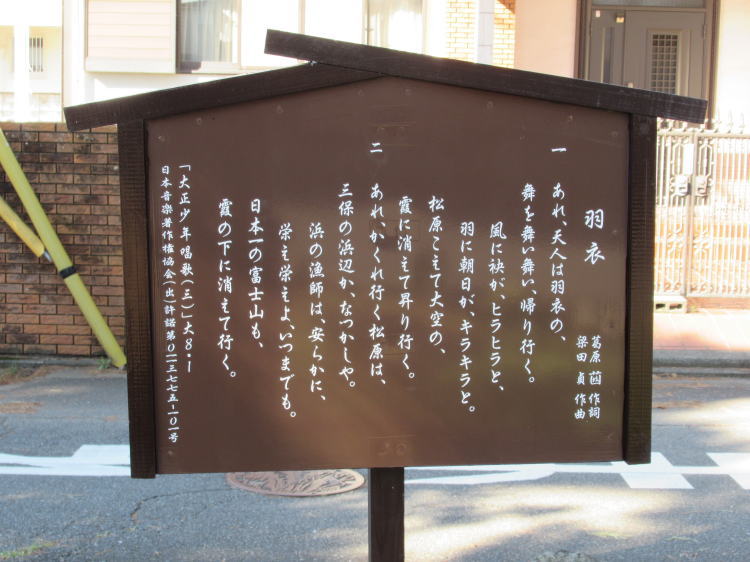 羽衣
葛原 𦮙 作詞
梁田 貞 作曲
一 あれ、天人は羽衣の、
舞を舞い舞い、帰り行く。
風に袂が、ヒラヒラと、
羽に朝日が、キラキラと。
松原こえて大空の、
霞に消えて昇り行く。
二 あれ、かくれ行く松原は、
三保の浜辺か、なつかしや。
浜の漁師は、安らかに、
栄え栄えよ、いつまでも。
日本一の富士山も、
霞の下に消えて行く。
「大正少年唱歌(三)」大8・1
日本音楽著作権協会(出)許諾第〇一三七七五一-一〇一号